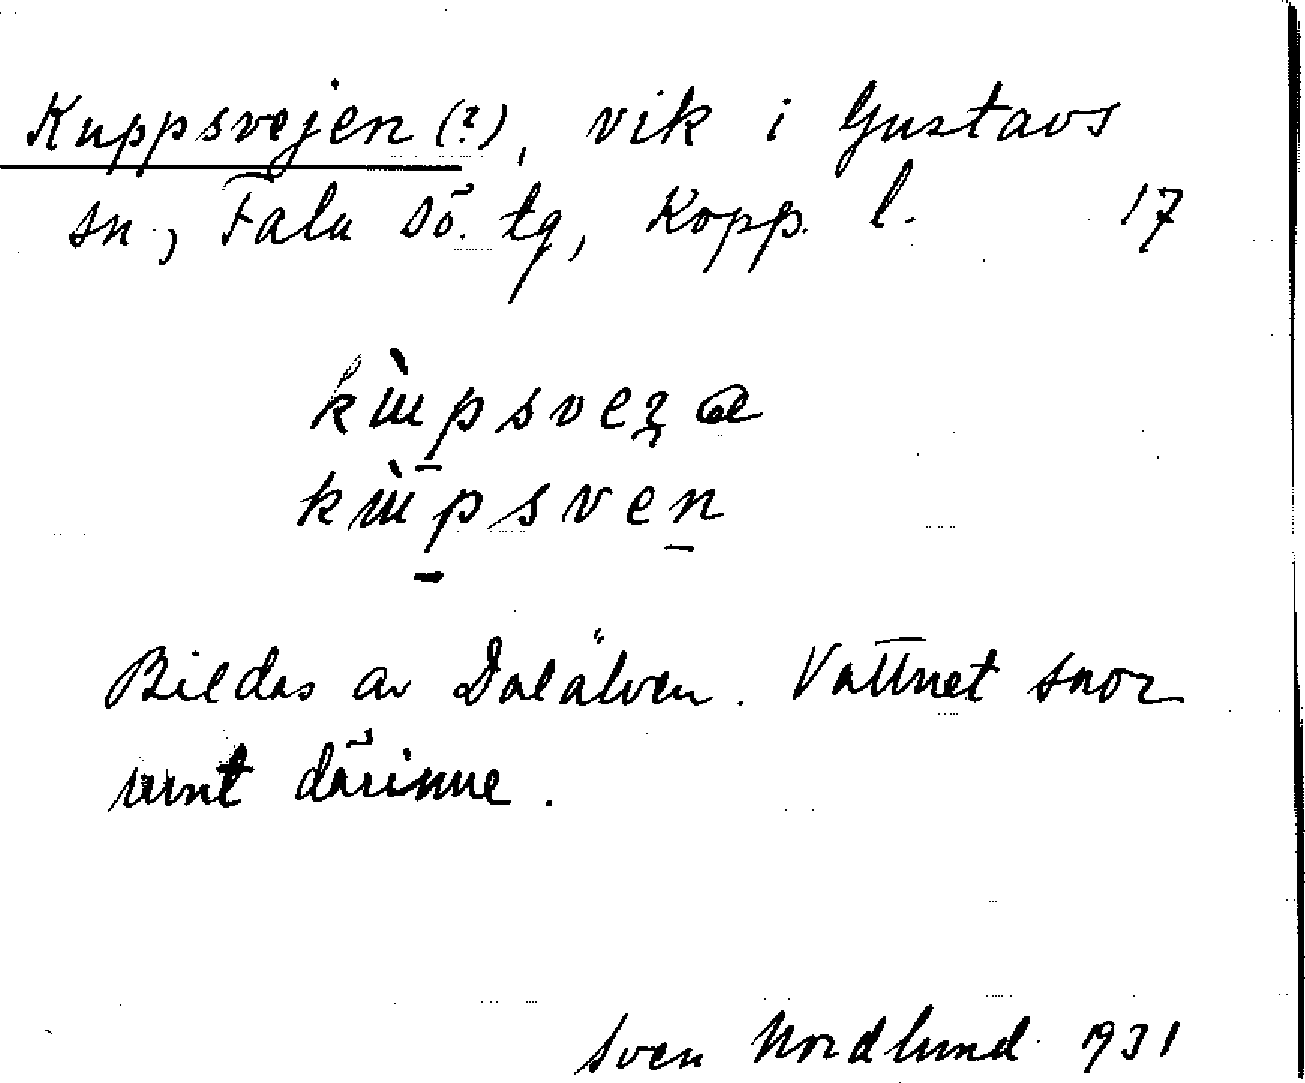 Kuppsvejen (?), vik i Gustavs
sn, Falu Sö. tg, Kopp. l. 17
Bildas av Dalälven. Vattnet snor
runt därinne.
Sven Nordlund 1931